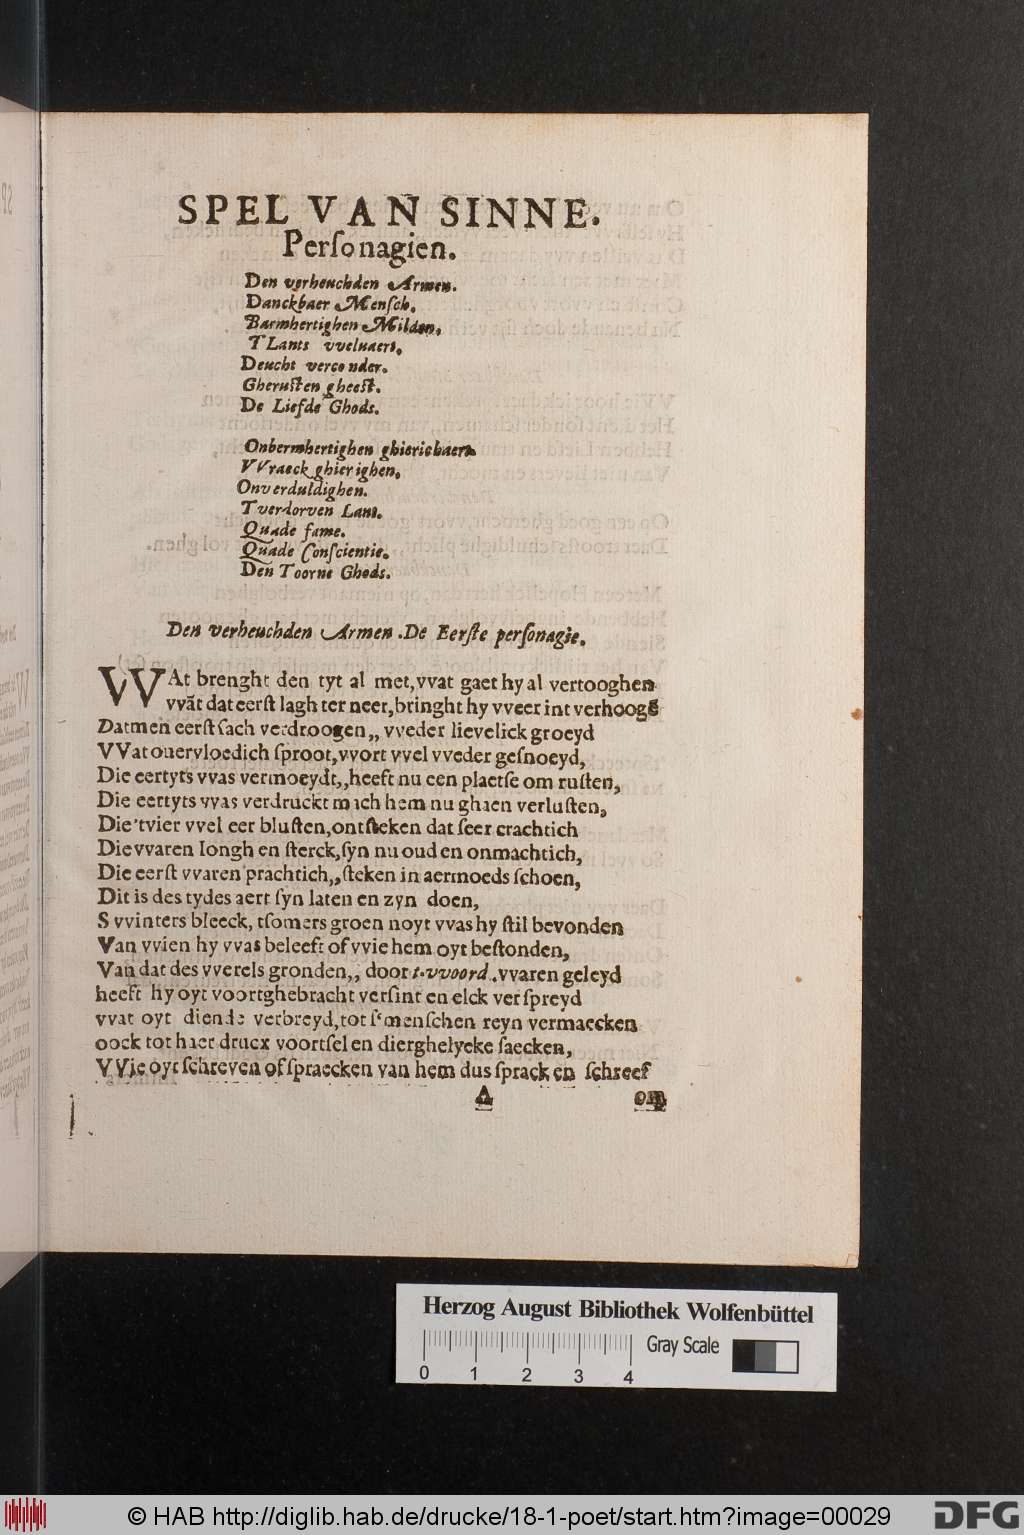 SPEL VAN SINNE.
Perſonagien.
Den verheuchden Armen.
Danckbaer Menſch.
Barmhertighen Milden.
T Lants vvelvaert.
Deucht verconder.
Gheruſten gheeſt.
De Liefde Ghods.
Onbermhertighen ghierichaert
VVraeck ghierighen.
Onverduldighen.
Tverdorven Lant.
Quade fame.
Quade Conſcientie.
Den Toorne Ghods.
Den verheuchden Armen .De Eerſte perſonagie.
WAt brenght den tyt al met, vvat gaet hy al vertooghen
vvãt dat eerſt lagh ter neer, bringht hy vveer int verhooge
Datmen eerſt ſach verdroogen,, vveder lievelick groeyd
VVat ouervloedich ſproot, vvort vvel vveder geſnoeyd,
Die eertyts vvas vermoeydt,, heeft nu een plaetſe om ruſten,
Die eertyts vvas verdruckt mach hem nu ghaen verluſten,
Die'tvier vvel eer bluſten, ontſteken dat ſeer crachtich
Die vvaren Iongh en ſterck, ſyn nu oud en onmachtich,
Die eerſt vvaren prachtich,, ſteken in aermoeds ſchoen,
Dit is des tydes aert ſyn laten en zyn doen,
S vvinters bleeck, tſomers groen noyt vvas hy ſtil bevonden
Van vvien hy vvas beleeft of vvie hem oyt beſtonden,
Van dat des vverels gronden,, door t.vvoord .vvaren geleyd
heeft hy oyt voortghebracht verſint en elck verſpreyd
vvat oyt diende verbreyd, tot ſ'menſchen reyn vermaecken
oock tot haer drucx voortſel en dierghelycke ſaecken,
VVie oyt ſchreven of ſpraecken van hem dus ſprack en ſchreef
A om
Herzog August Bibliothek Wolfenbüttel
Gray Scale
0 1 2 3 4
© HAB http://diglib.hab.de/drucke/18-1-poet/start.htm?image=00029
DFG